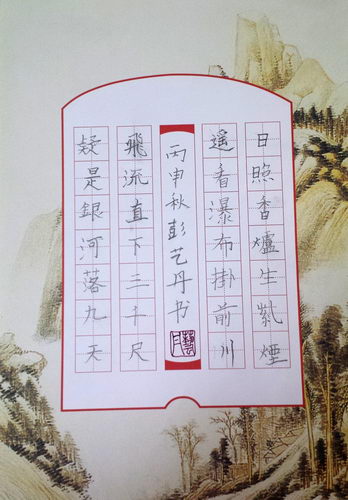 日照香爐生紫煙
遙看瀑布掛前川
丙申秋彭艺丹书
飛流直下三千尺
疑是銀河落九天